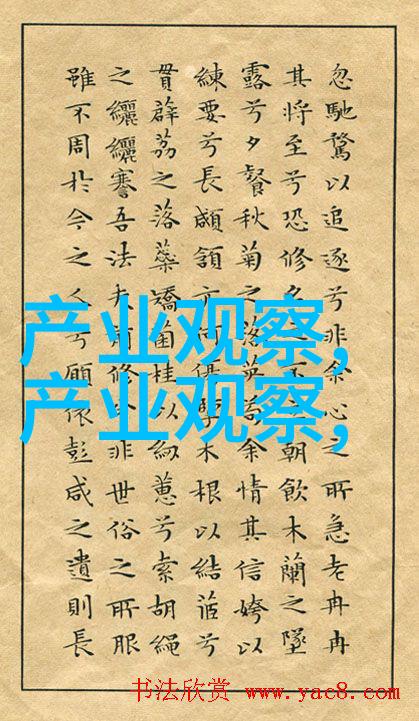 忽馳騖以追逐兮非余心之所急老冉冉
其將至兮恐修名之不立朝飲木蘭之墜
露兮夕餐秋菊之落英苟余情其信姱以
練要兮長顑頷亦何傷擥木根以結茝兮
貫薜荔之落蘂矯菌桂以紉蕙兮索胡繩
之纚纚謇吾法夫前修兮非世俗之所服
雖不周於今之人兮願依彭咸之遺則長
产业观察,
产业观察,
书法欣赏 www.yac8.com